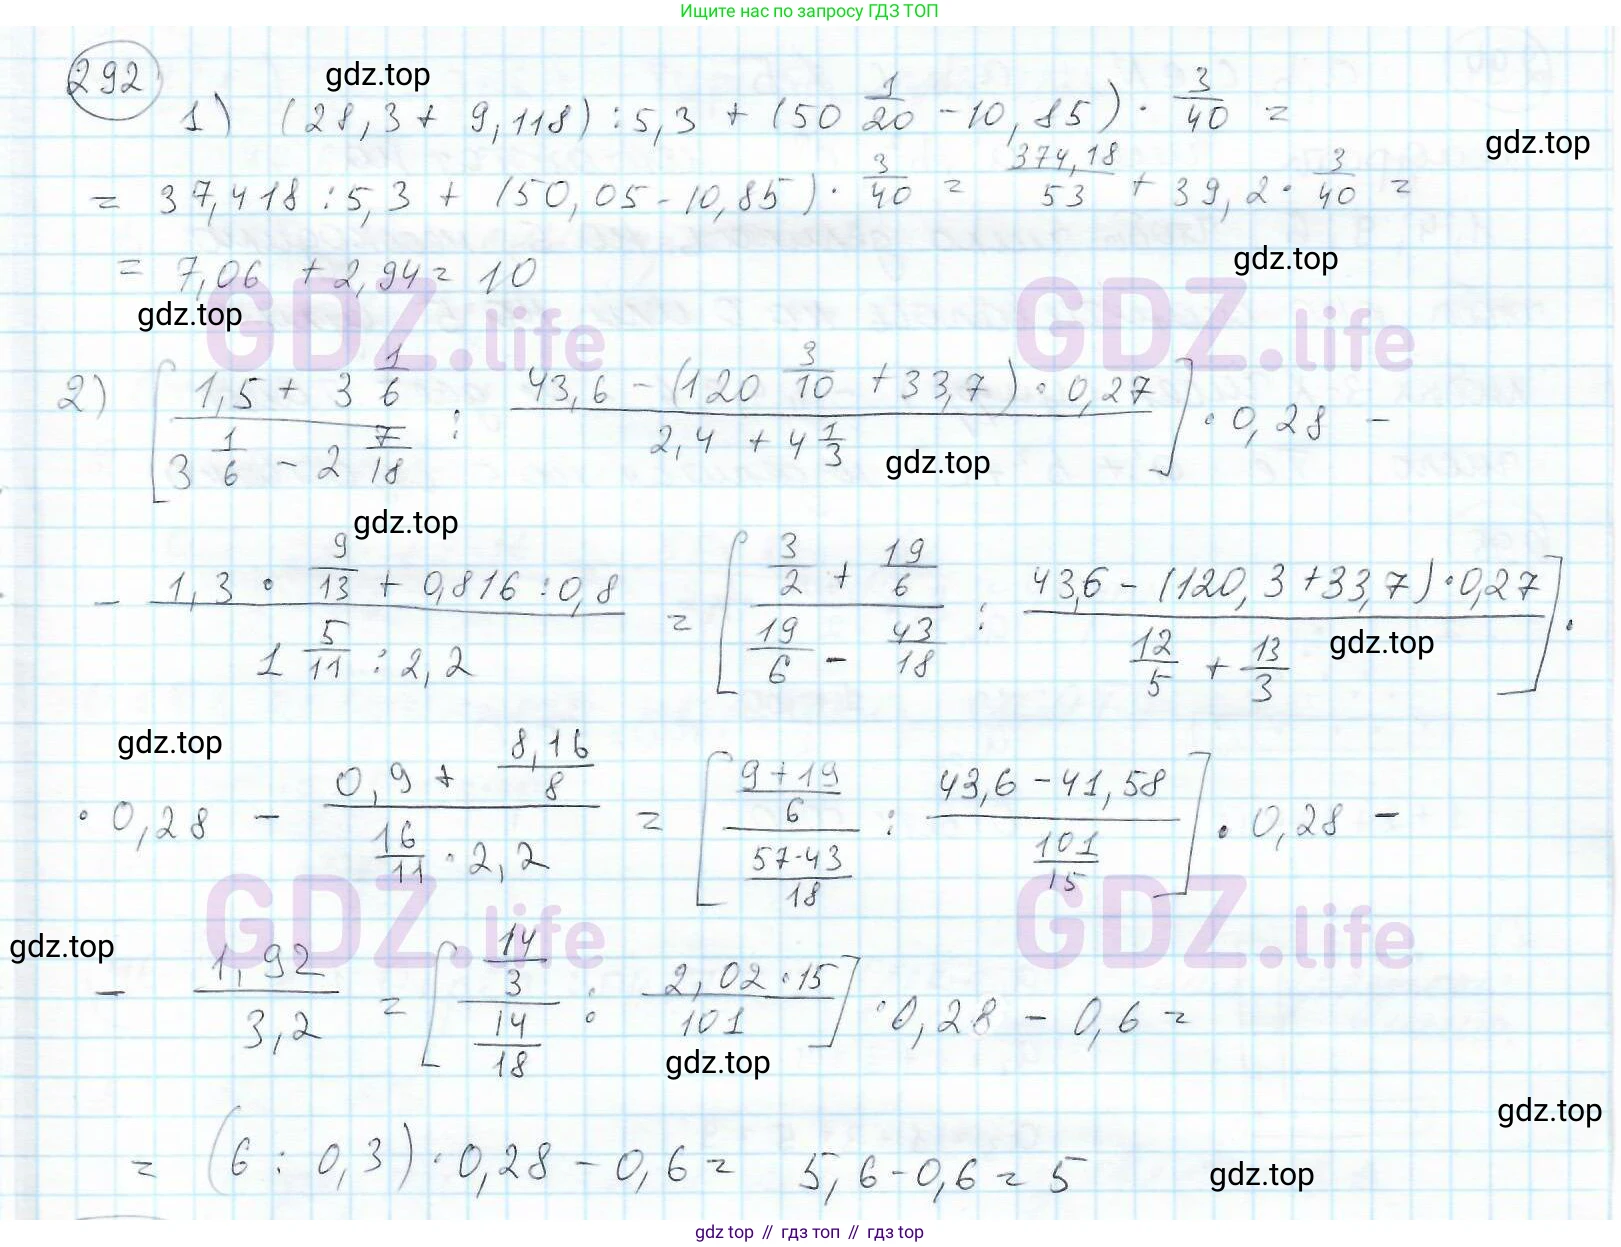 Ищите нас по запросу ГДЗ ТОП
292
gdz.top
1) (28,3 + 9,118) : 5,3 + (50 1/20 - 10,85) · 3/40 =
gdz.top
= 37,418 : 5,3 + (50,05 - 10,85) · 3/40 = 374,18/53 + 39,2 · 3/40 =
gdz.top
= 7,06 + 2,94 = 10
gdz.top
GDZ.life GDZ.life
2) [ (1,5 + 3 1/6)/(3 1/6 - 2 7/18) : (43,6 - (120 3/10 + 33,7) · 0,27)/(2,4 + 4 1/3) ] · 0,28 -
gdz.top
gdz.top
- (1,3 · 9/13 + 0,816 : 0,8)/(1 5/11 : 2,2) = [ (3/2 + 19/6)/(19/6 - 43/18) : (43,6 - (120,3 + 33,7) · 0,27)/(12/5 + 13/3) ] ·
gdz.top
gdz.top
· 0,28 - (0,9 + 8,16/8)/(16/11 · 2,2) = [ ((9+19)/6)/((57-43)/18) : (43,6 - 41,58)/(101/15) ] · 0,28 -
GDZ.life GDZ.life
gdz.top
- 1,92/3,2 = [ (14/3)/(14/18) : (2,02 · 15)/101 ] · 0,28 - 0,6 =
gdz.top
gdz.top
= (6 : 0,3) · 0,28 - 0,6 = 5,6 - 0,6 = 5
gdz.top
gdz top // гдз топ // gdz top